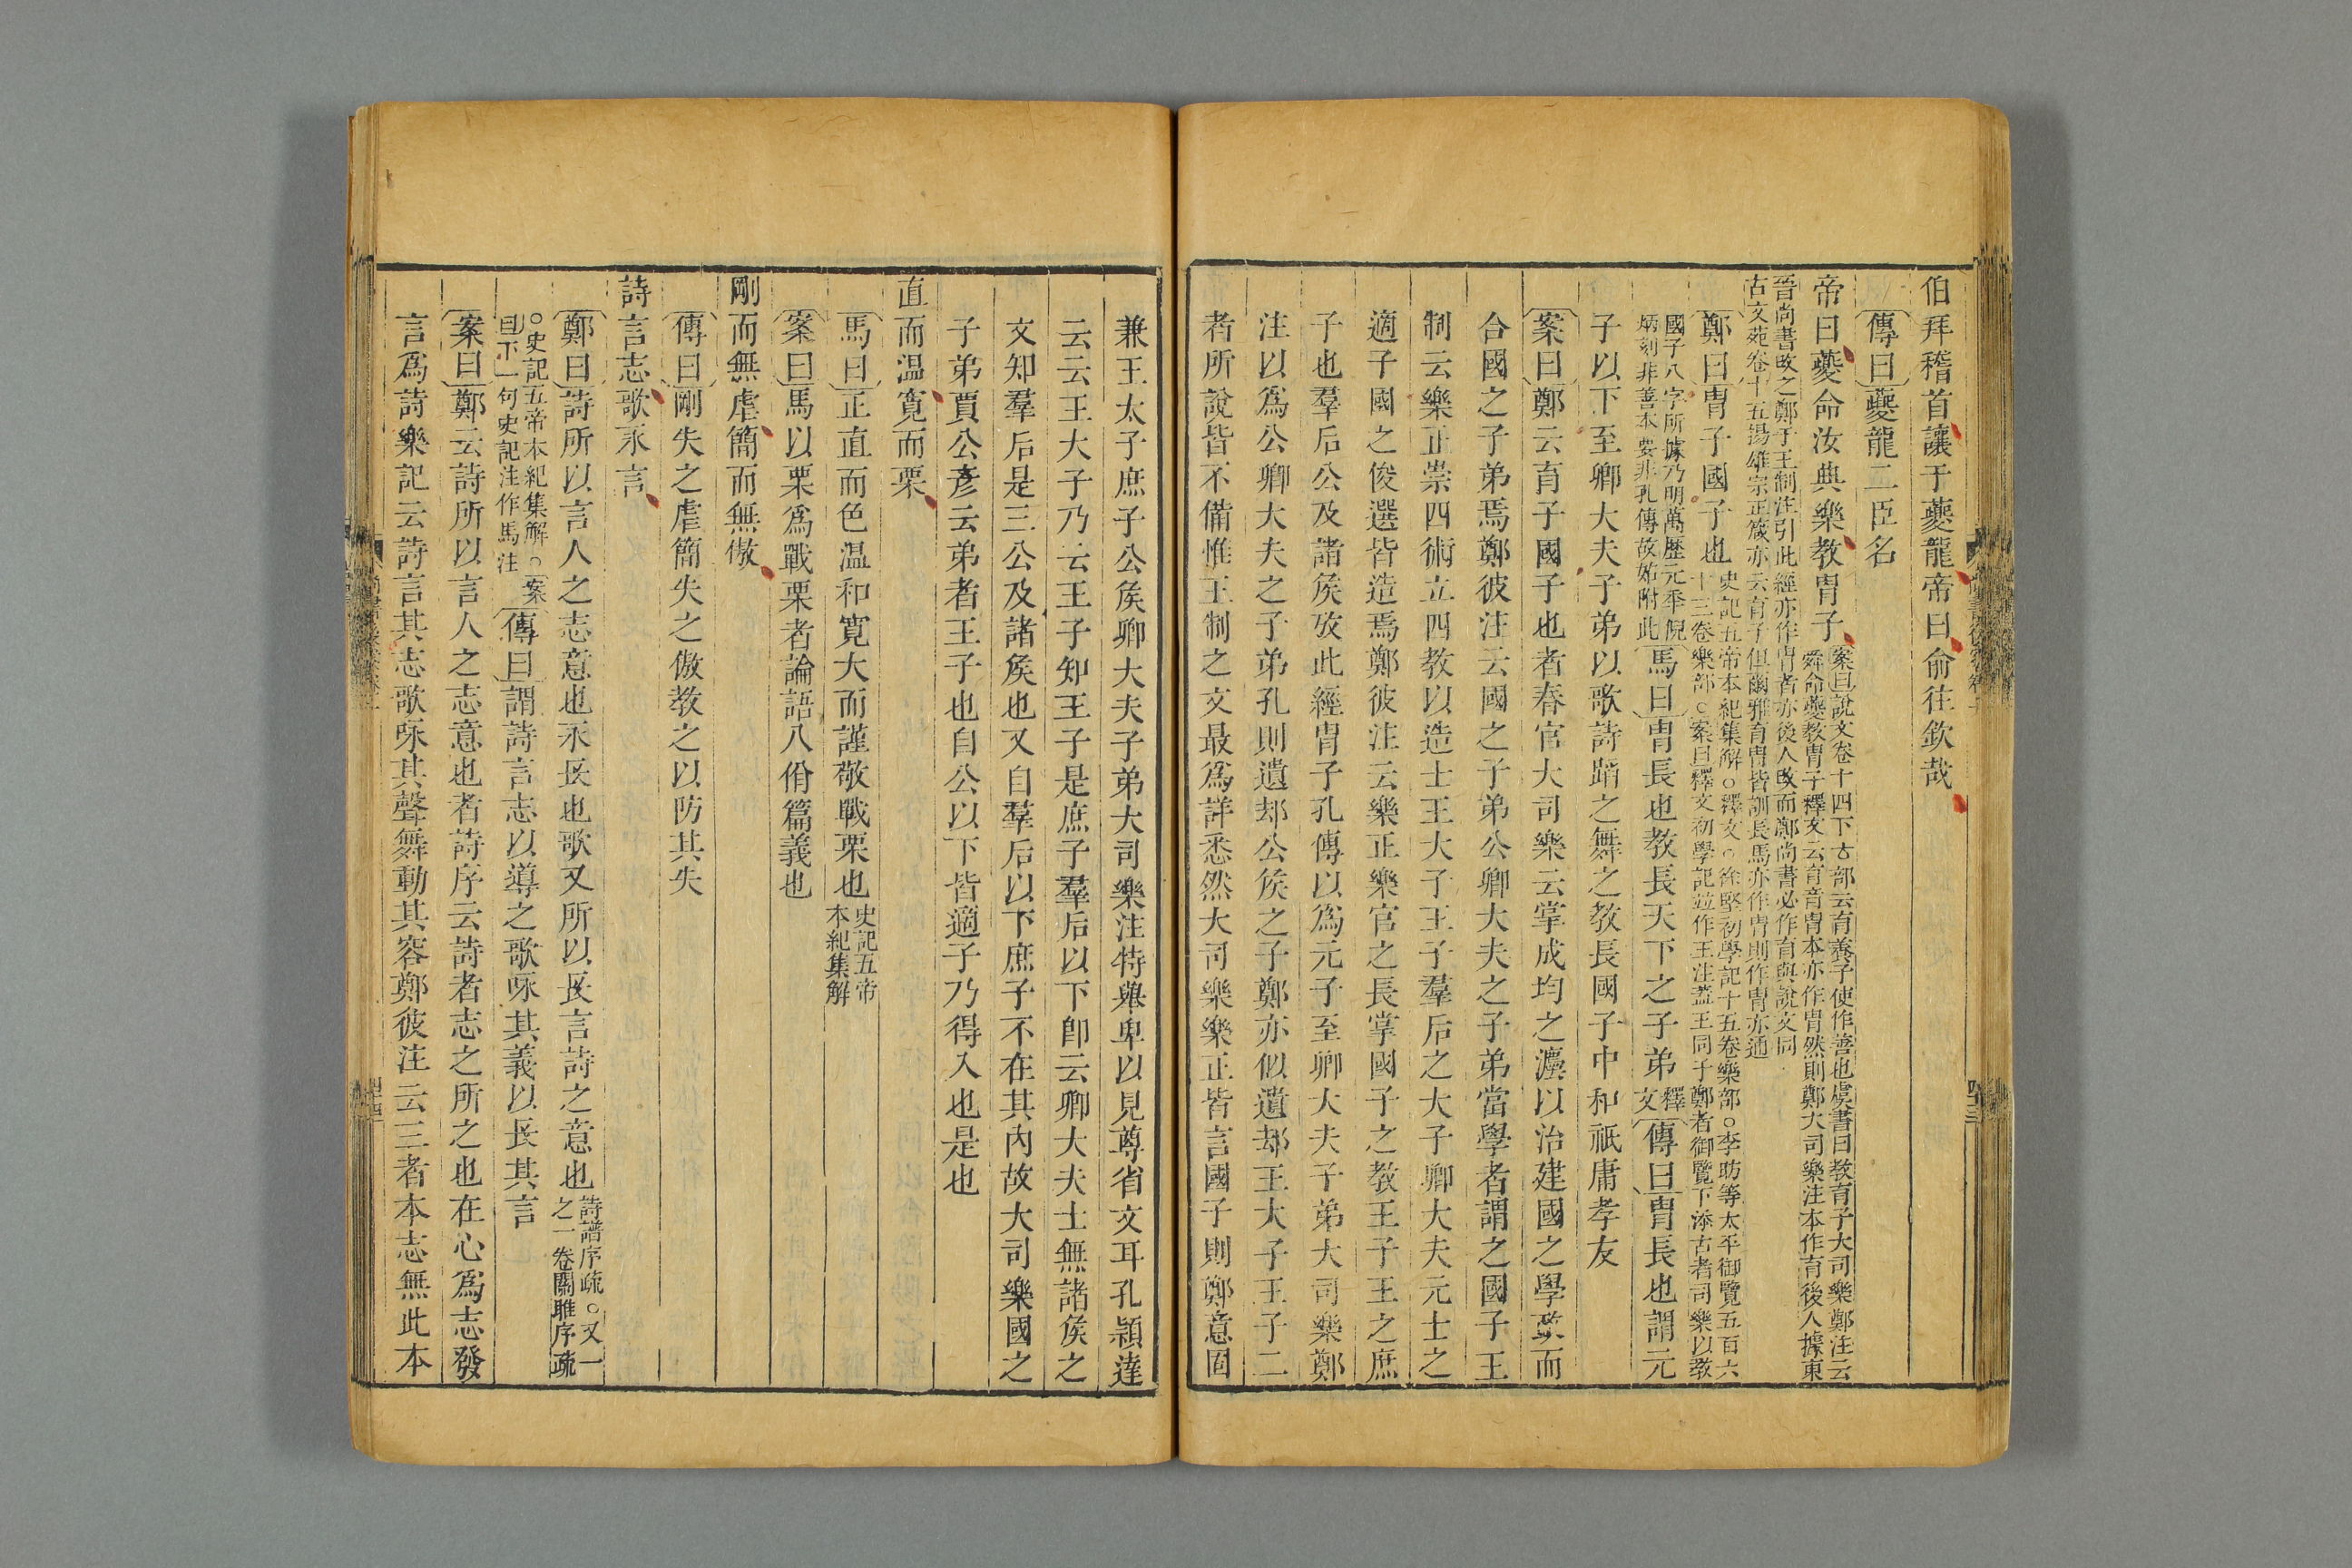 伯拜稽首讓于夔龍帝曰俞往欽哉
傳曰夔龍二臣名
帝曰夔命汝典樂教胄子
案曰說文卷十四下𠫓部云育養子使作善也虞書曰教育子大司樂鄭注云
舜命夔教胄子釋文云育音胄本亦作胄然則鄭大司樂注本作育後人據東
晉尚書改之鄭于王制注引此經亦作胄者亦後人改而鄭尚書必作育與說文同
古文苑卷十五揚雄宗正箴亦云育子但爾雅育胄皆訓長馬亦作胄則作胄亦通
鄭曰胄子國子也
史記五帝本紀集解○釋文○徐堅初學記十五卷樂部○李昉等太平御覽五百六
十三卷樂部○案曰釋文初學記並作王注蓋王同于鄭者御覽下添古者司樂以教
國子八字所據乃明萬歷元年倪
炳刻非善本要非孔傳故姑附此
馬曰胄長也教長天下之子弟
釋
文
傳曰胄長也謂元
子以下至卿大夫子弟以歌詩蹈之舞之教長國子中和祇庸孝友
案曰鄭云育子國子也者春官大司樂云掌成均之灋以治建國之學政而
合國之子弟焉鄭彼注云國之子弟公卿大夫之子弟當學者謂之國子王
制云樂正崇四術立四教以造士王大子王子羣后之大子卿大夫元士之
適子國之俊選皆造焉鄭彼注云樂正樂官之長掌國子之教王子王之庶
子也羣后公及諸矦攷此經胄子孔傳以爲元子至卿大夫子弟大司樂鄭
注以爲公卿大夫之子弟孔則遺却公矦之子鄭亦似遺却王大子王子二
者所說皆不備惟王制之文最爲詳悉然大司樂樂正皆言國子則鄭意固
兼王太子庶子公矦卿大夫子弟大司樂注特舉卑以見尊省文耳孔穎達
云云王大子乃云王子知王子是庶子羣后以下卽云卿大夫士無諸矦之
文知羣后是三公及諸矦也又自羣后以下庶子不在其內故大司樂國之
子弟賈公彥云弟者王子也自公以下皆適子乃得入也是也
直而温寬而栗
馬曰正直而色温和寬大而謹敬戰栗也
史記五帝
本紀集解
案曰馬以栗爲戰栗者論語八佾篇義也
剛而無虐簡而無傲
傳曰剛失之虐簡失之傲教之以防其失
詩言志歌永言
鄭曰詩所以言人之志意也永長也歌又所以長言詩之意也
詩譜序疏○又一
之一卷關雎序疏
○史記五帝本紀集解○案
曰下一句史記注作馬注
傳曰謂詩言志以導之歌咏其義以長其言
案曰鄭云詩所以言人之志意也者詩序云詩者志之所之也在心爲志發
言爲詩樂記云詩言其志歌咏其聲舞動其容鄭彼注云三者本志無此本